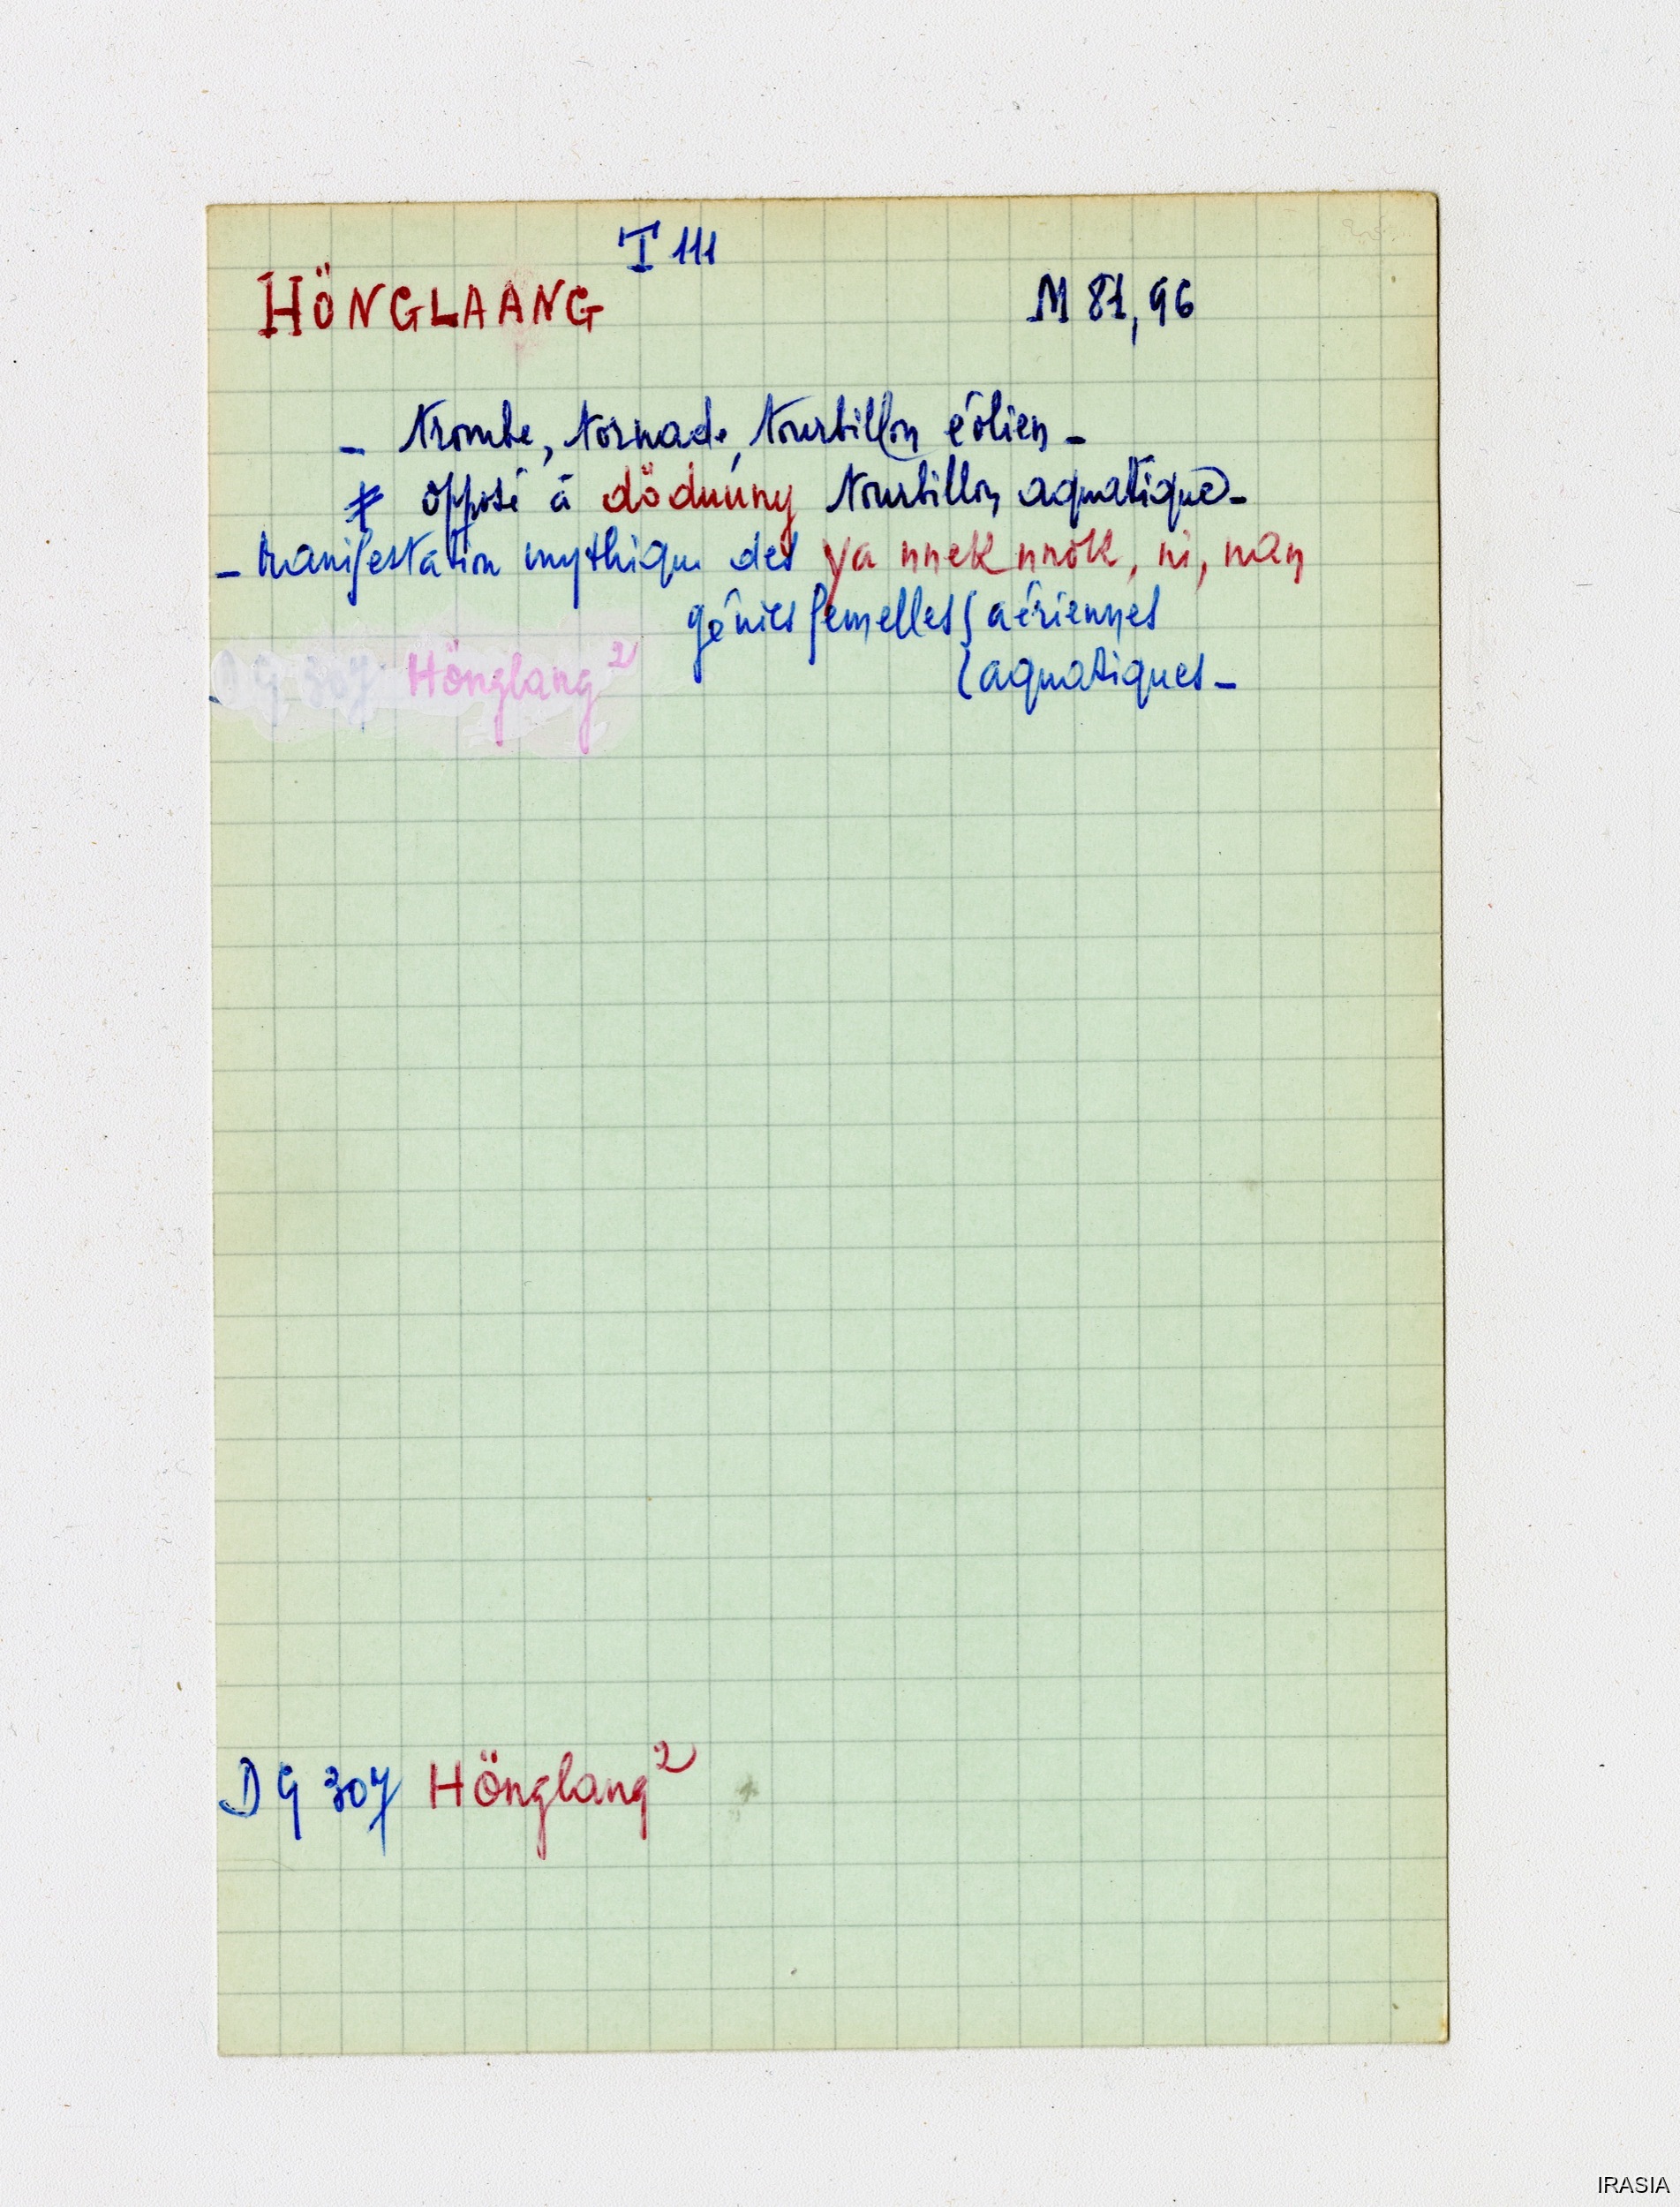 T 111
HÖNGLAANG M 81, 96
- trombe, tornade, tourbillon éolien -
≠ opposé à döduúny tourbillon aquatique -
- manifestation mythique des ya nnek nnôk, ni, nan
génies femelles { aériennes
{ aquatiques -
DG 307 Hönglang²
DG 307 Hönglang²
IRASIA